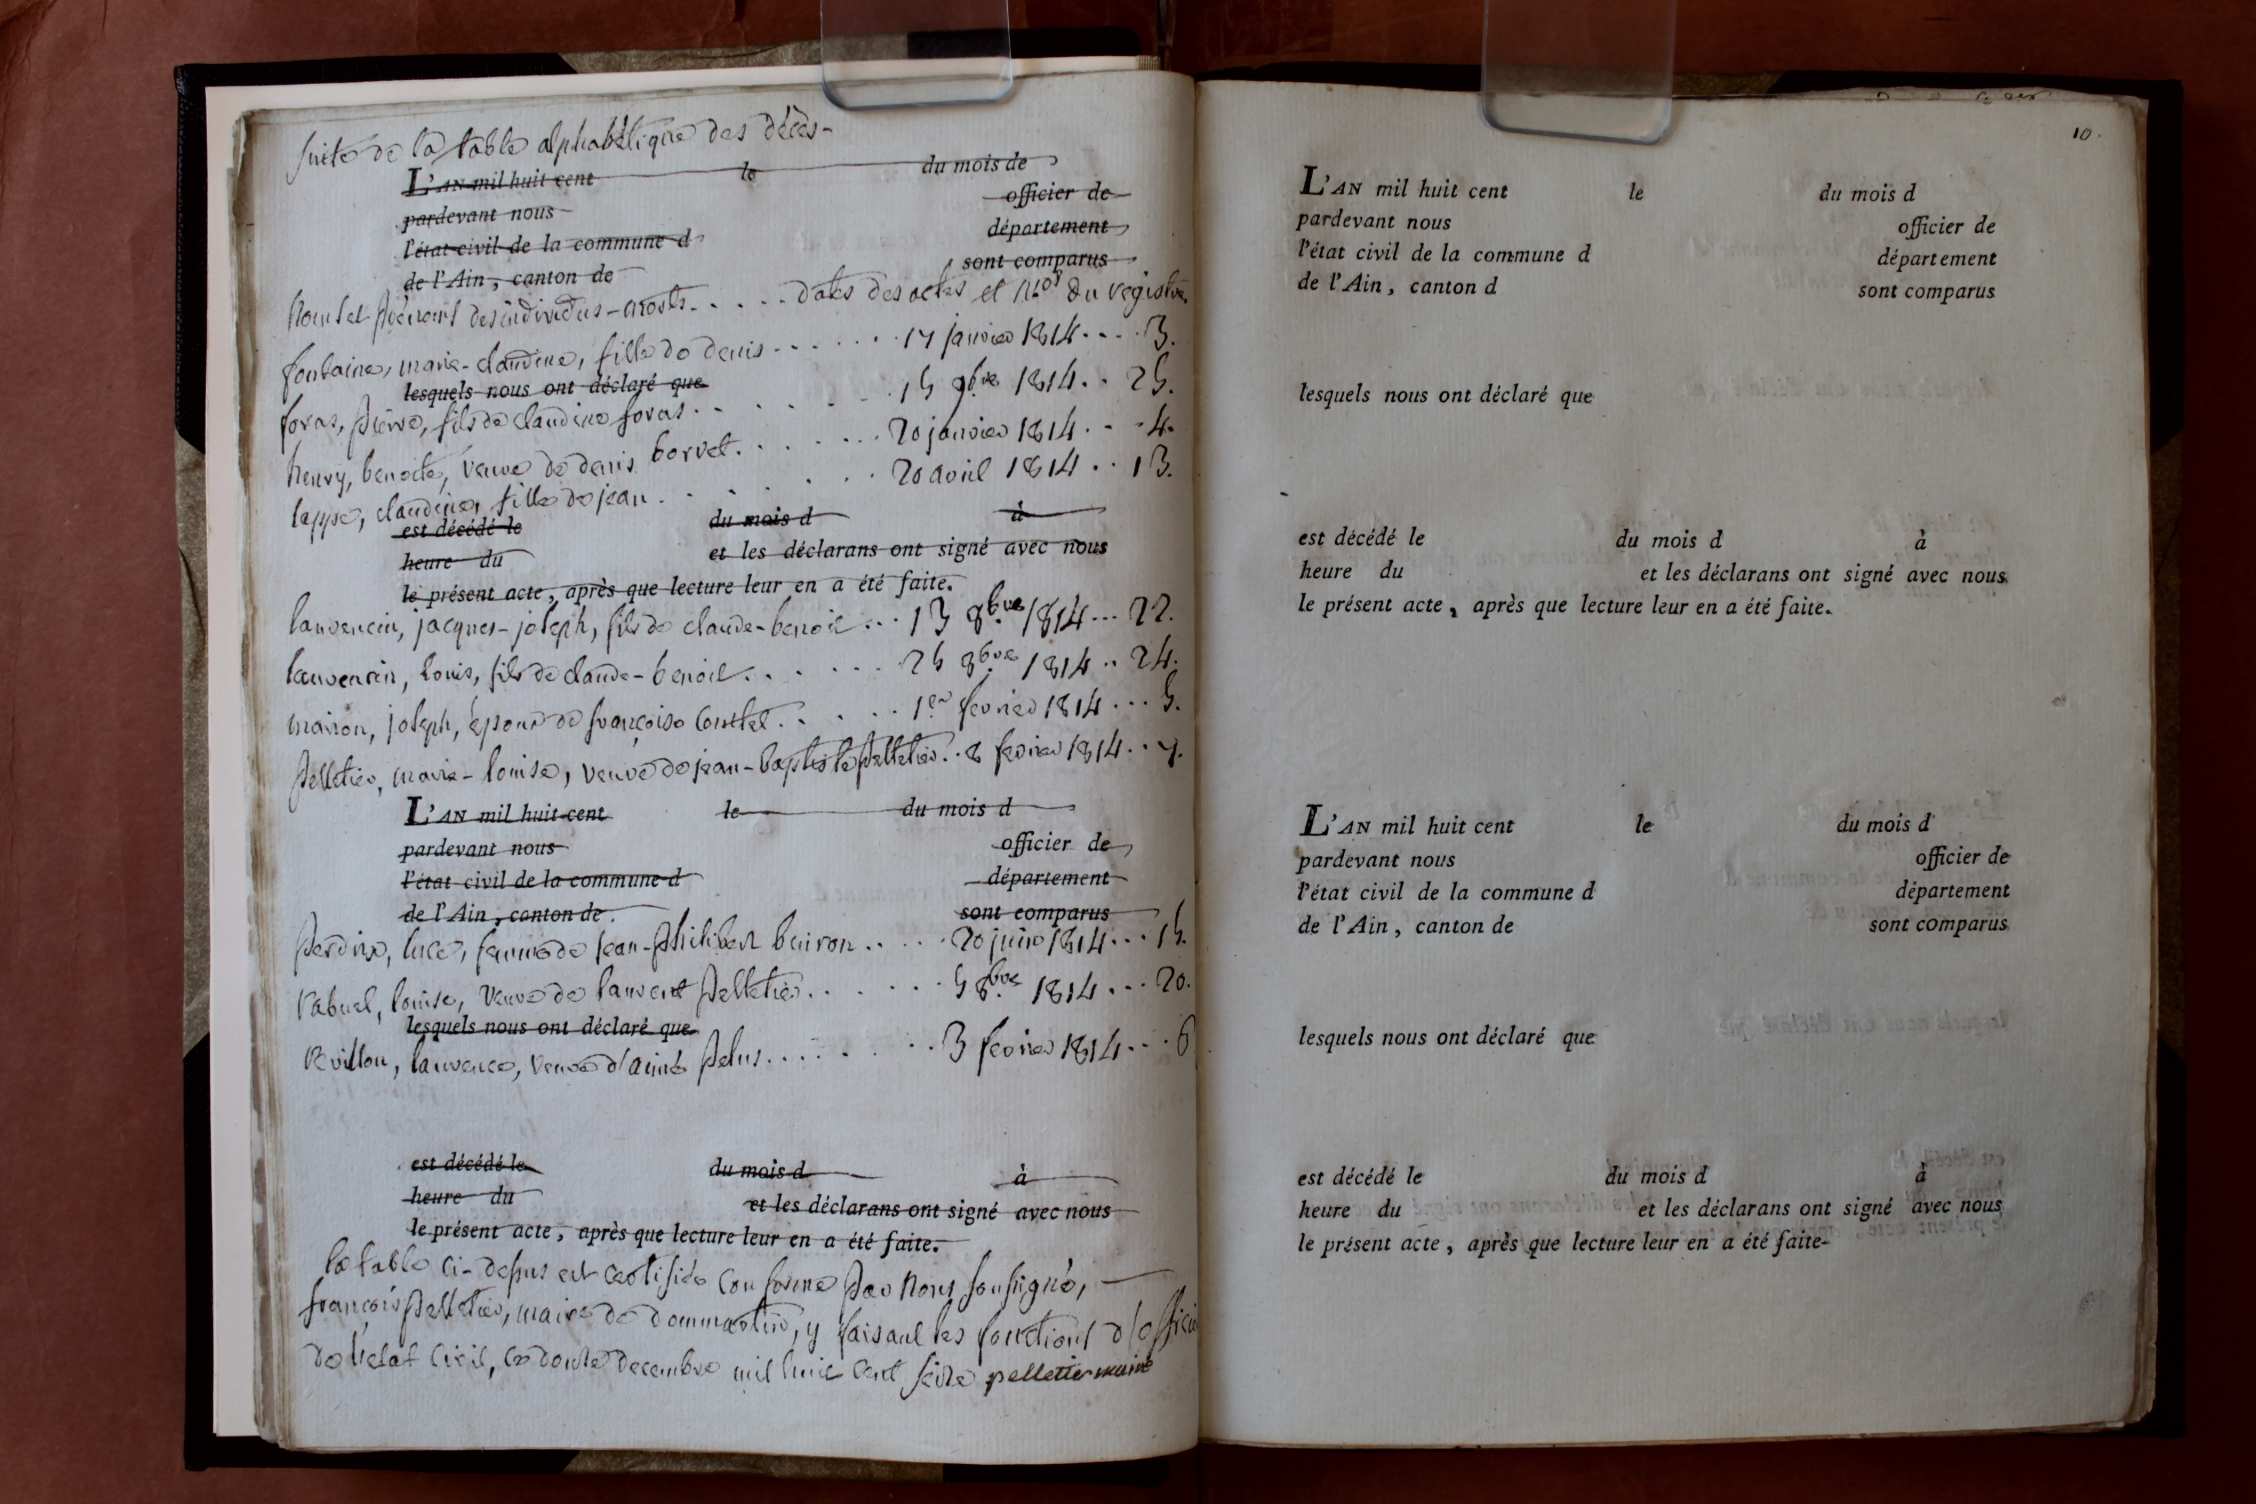 suite de la table alphabétique des décès-
L'AN mil huit cent le du mois de
pardevant nous officier de
l'état civil de la commune d département
de l'Ain, canton de sont comparus
noms et prénoms des individus-morts. . . . . dates des actes et n.os du registre.
fontaine, marie-claudine, fille de denis . . . . . . . 17 janvier 1814 . . . . 3.
lesquels nous ont déclaré que
foras, pierre, fils de claudine foras . . . . . . . 15 9.bre 1814 . . 25.
henry, benoite, veuve de denis borvet . . . . . . . 20 janvier 1814 . . . 4.
lappe, claudine, fille de jean . . . . . . . 20 avril 1814 . . 13.
est décédé le du mois d à
heure du et les déclarans ont signé avec nous
le présent acte, après que lecture leur en a été faite.
laurencin, jacques-joseph, fils de claude-benoit . . . 13 8.bre 1814 . . . 22.
laurencin, louis, fils de claude-benoit . . . . . . . 25 8.bre 1814 . . 24.
mairon, joseph, époux de françoise . . . . . . 1.er fevrier 1814 . . . 5.
pelletier, marie-louise, veuve de jean-baptiste pelletier . . 8 fevrier 1814 . . 7.
L'AN mil huit cent le du mois d
pardevant nous officier de
l'état civil de la commune d département
de l'Ain, canton de sont comparus
perdrix, luce, femme de jean-philibert buiron . . . . . 20 juin 1814 . . . 15.
rabuel, louise, veuve de laurent pelletier . . . . . . . 5 8.bre 1814 . . . 20.
lesquels nous ont déclaré que
revillon, laurence, veuve d'aimé pelus . . . . . . . . 3 fevrier 1814 . . . 6
est décédé le du mois d à
heure du et les déclarans ont signé avec nous
le présent acte, après que lecture leur en a été faite.
la table ci-dessus est certifiée conforme par nous soussigné,
françois pelletier, maire de dommartin, y faisant les fonctions d'officier
de l'etat civil, ce douze decembre mil huit cent seize pelletier maire
10.
L'AN mil huit cent le du mois d
pardevant nous officier de
l'état civil de la commune d département
de l'Ain, canton d sont comparus
lesquels nous ont déclaré que
est décédé le du mois d à
heure du et les déclarans ont signé avec nous
le présent acte, après que lecture leur en a été faite.
L'AN mil huit cent le du mois d
pardevant nous officier de
l'état civil de la commune d département
de l'Ain, canton de sont comparus
lesquels nous ont déclaré que
est décédé le du mois d à
heure du et les déclarans ont signé avec nous
le présent acte, après que lecture leur en a été faite-